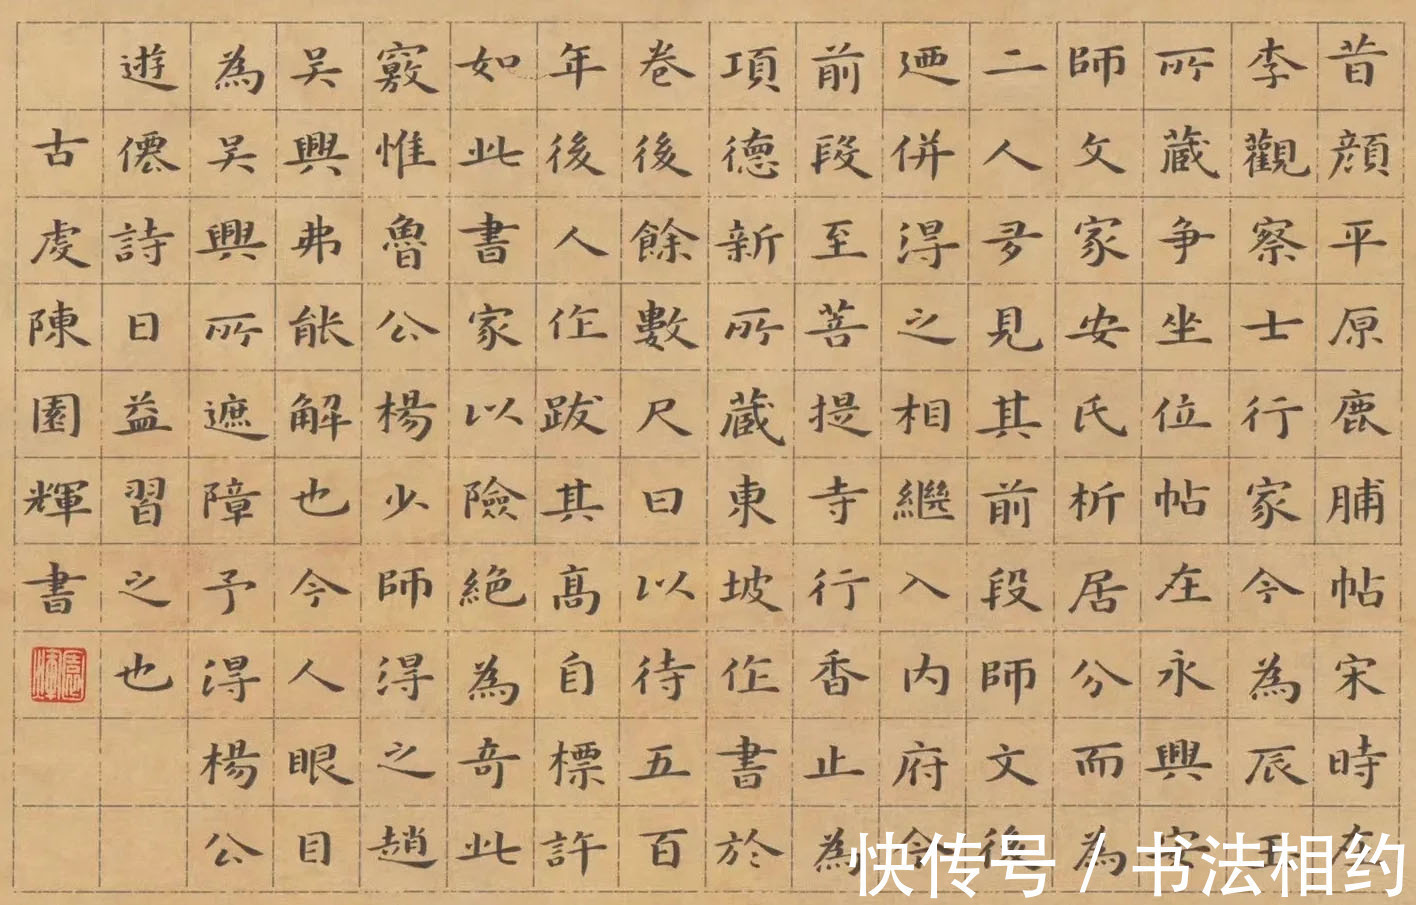 昔顔平原鹿脯帖宋時在
李觀察士行家今為辰玉
所藏争坐位帖在永興安
師文家安氏析居分而為
二人多見其前段師文後
廼併得之相繼入内府余
前段至菩提寺行香止為
項德新所藏東坡作書於
卷後餘數尺曰以待五百
年後人作跋其高自標許
如此書家以險絶為奇此
竅惟魯公楊少師得之趙
吴興弗能解也今人眼目
為吴興所遮障予得楊公
遊僊詩日益習之也
古虔陳園輝書
園輝
快传号 / 书法相约